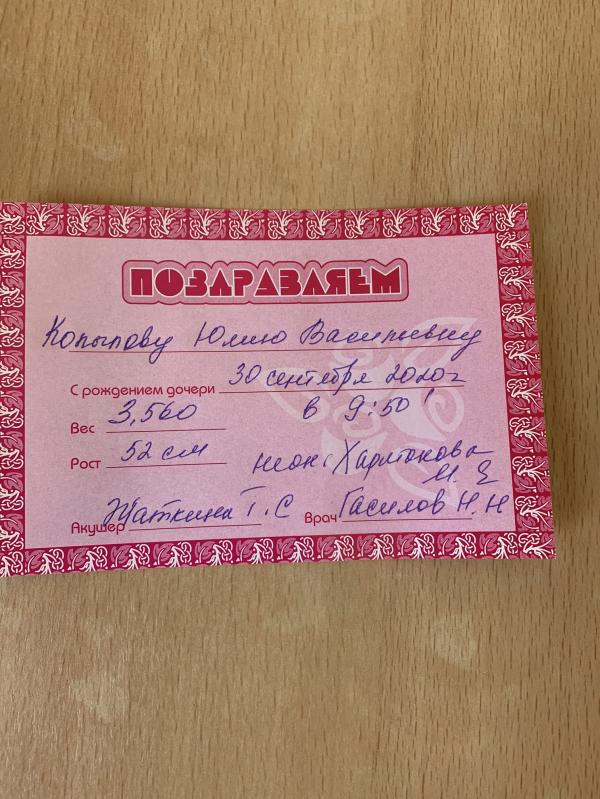 ПОЗДРАВЛЯЕМ
Копылову Юлию Васильевну
С рождением дочери 30 сентября 2020г
Вес 3,560 в 9:50
Рост 52 см неон: Харитонова
М. Е
Акушер Жаткина Т. С Врач Гасилов Н. Н